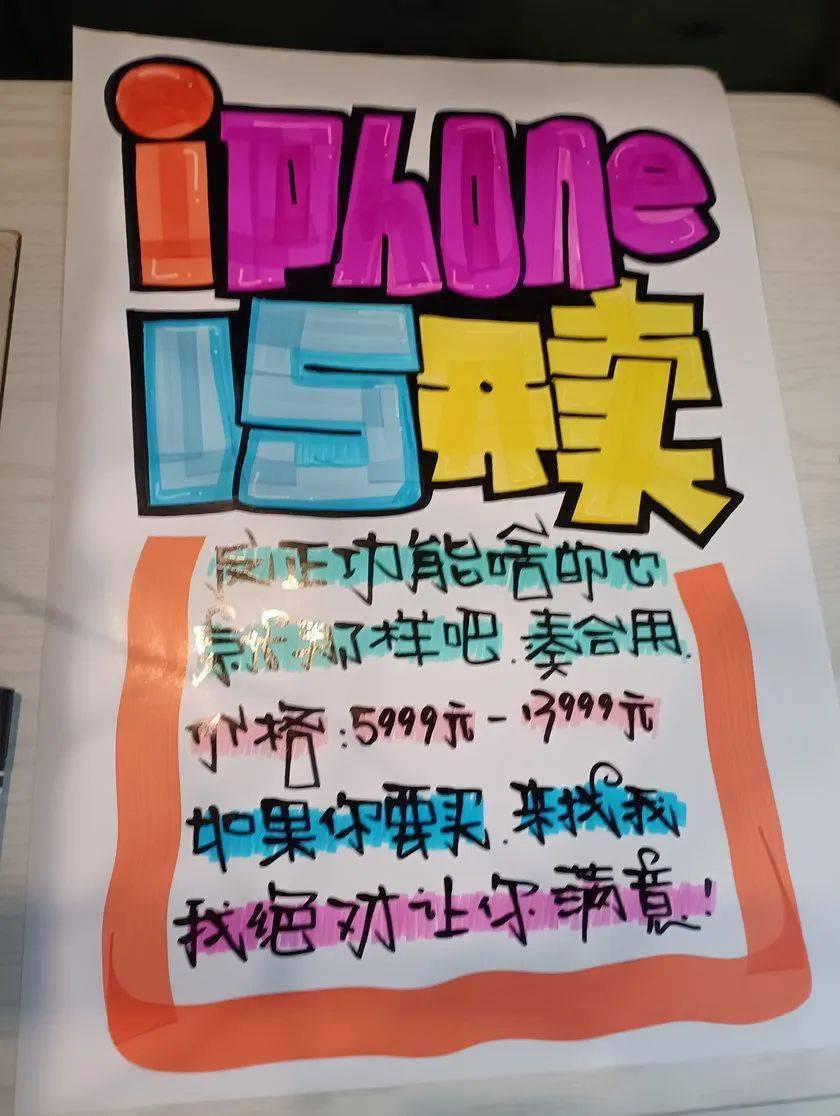 iPhone
15开卖
反正功能啥的也
就那样吧.凑合用.
价格:5999元-13999元
如果你要买.来找我
我绝对让你满意!